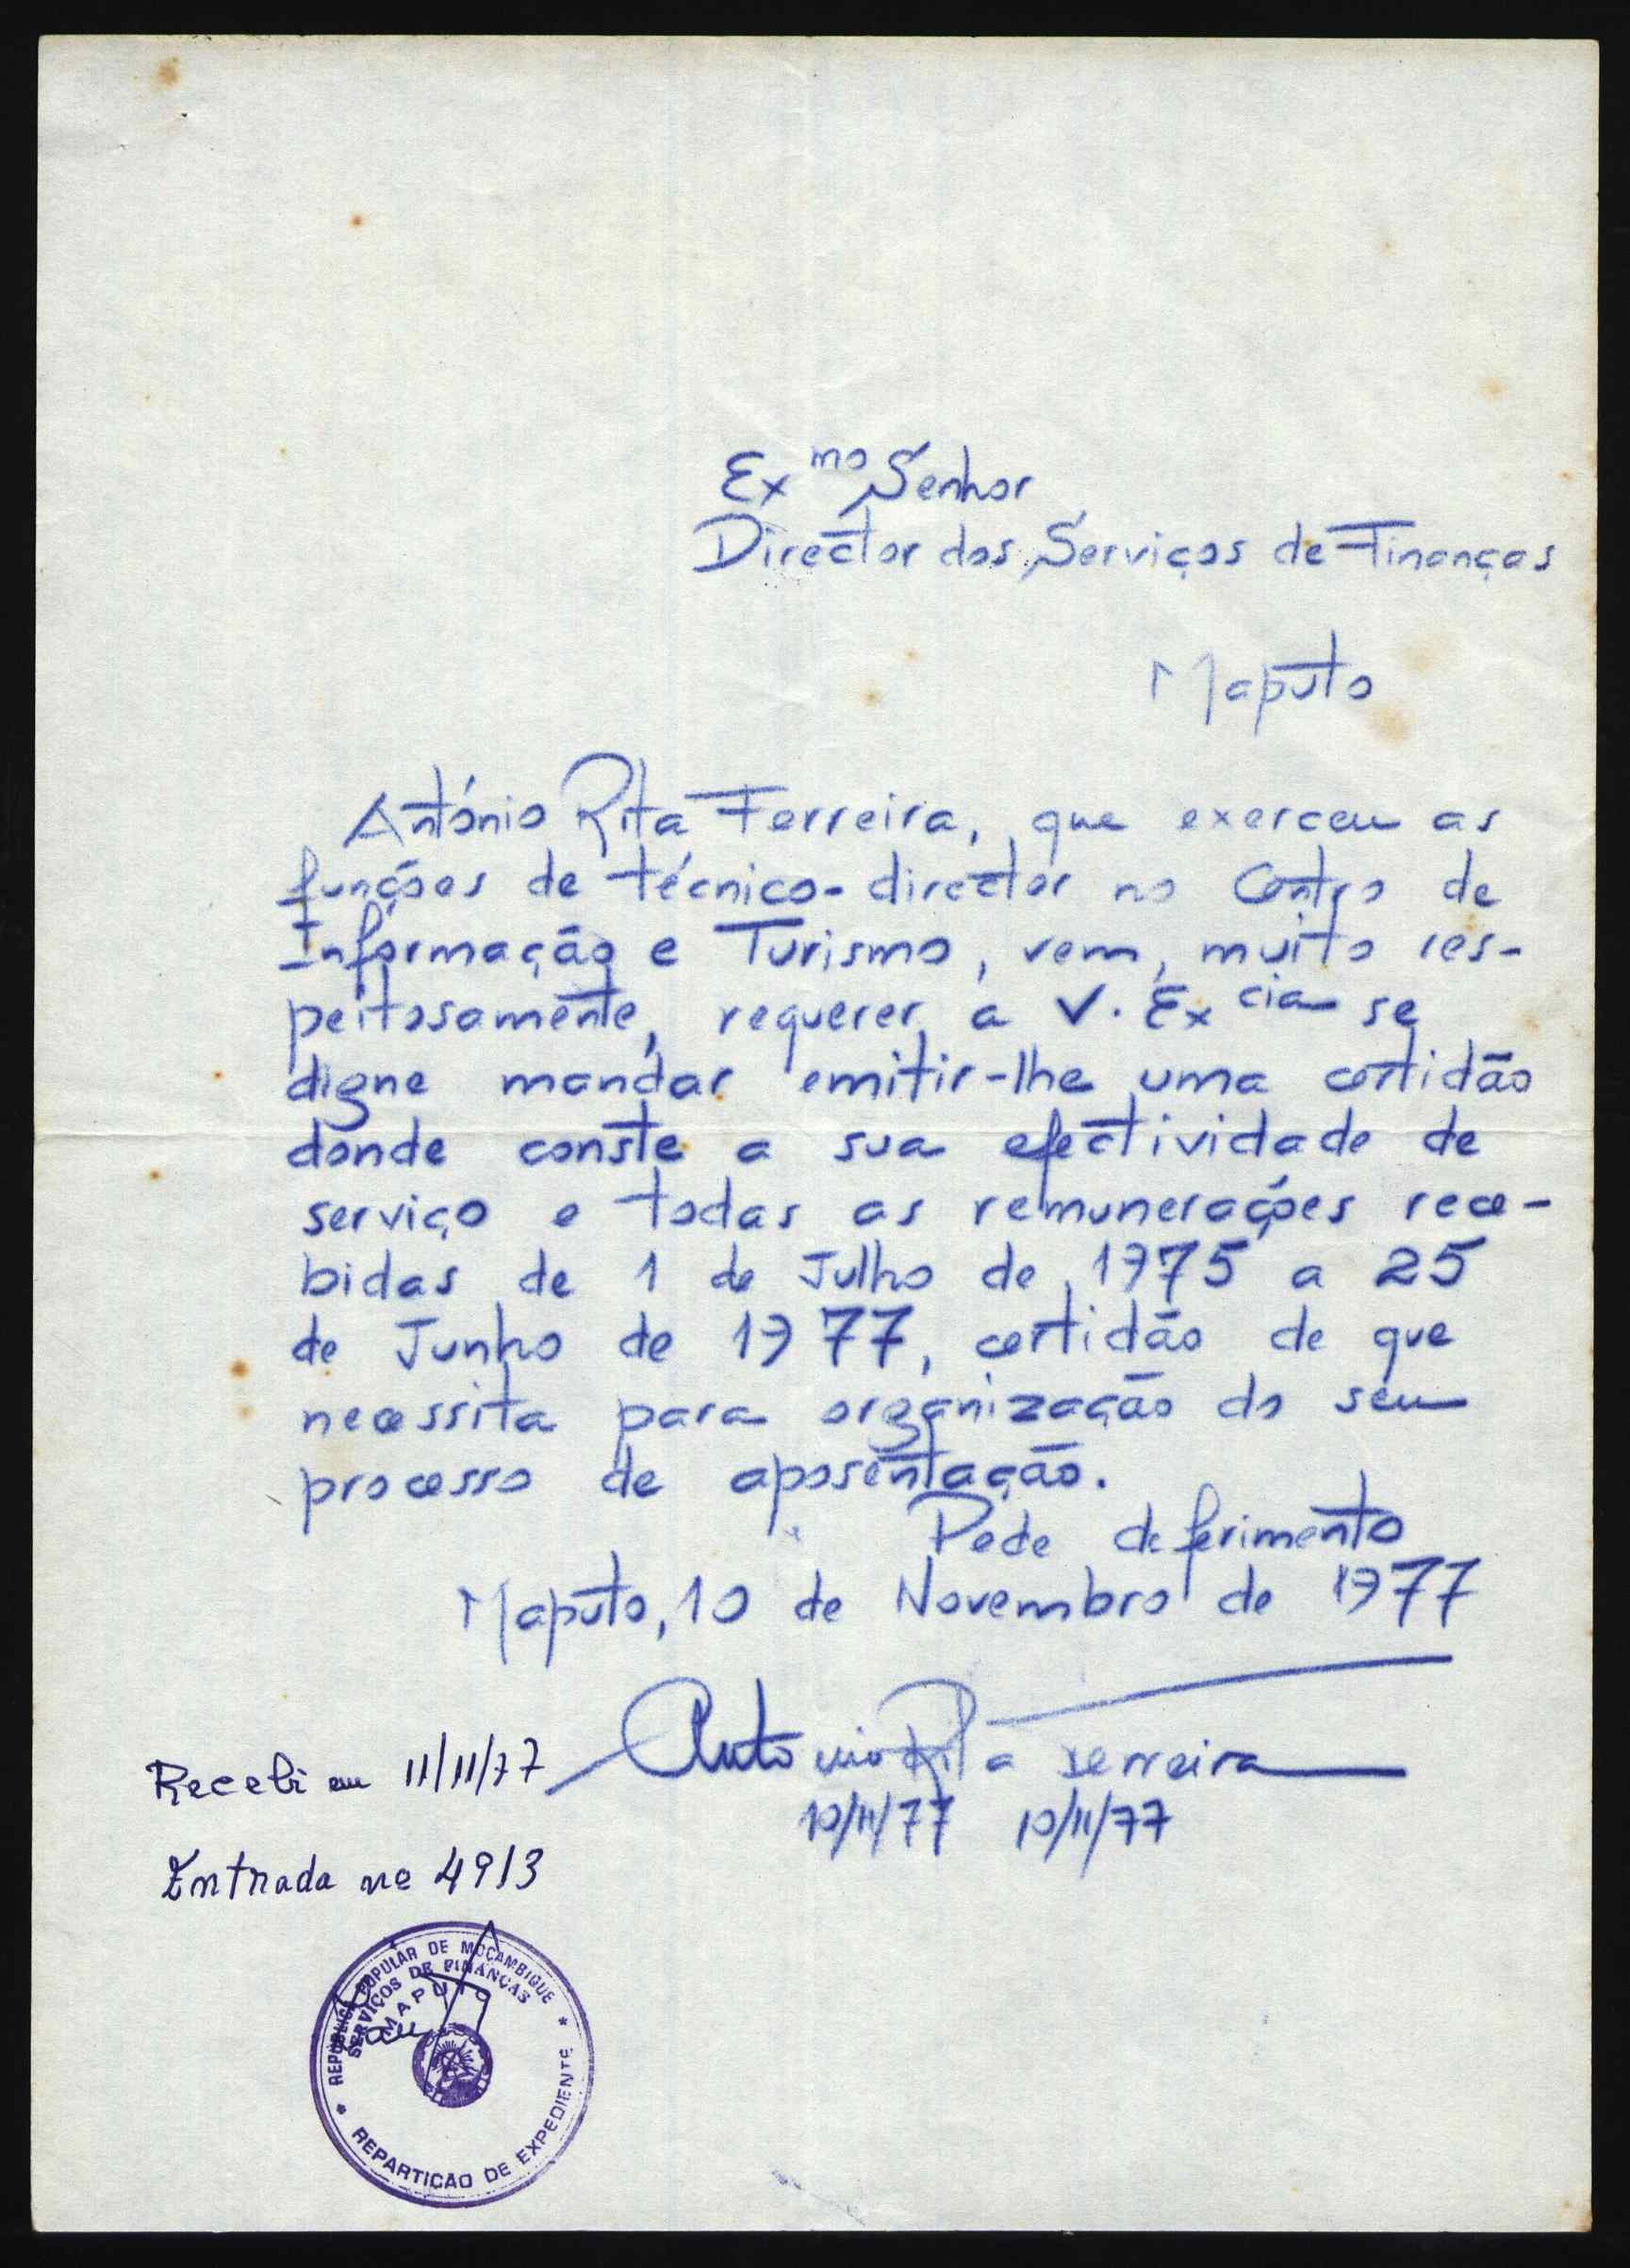 Exmo Senhor
Director dos Serviços de Finanças
Maputo
António Rita Ferreira, que exerceu as
funções de técnico-director no Centro de
Informação e Turismo, vem, muito res-
peitosamente, requerer a V. Excia se
digne mandar emitir-lhe uma certidão
donde conste a sua efectividade de
serviço e todas as remunerações rece-
bidas de 1 de Julho de 1975 a 25
de Junho de 1977, certidão de que
necessita para organização do seu
processo de aposentação.
Pede deferimento
Maputo, 10 de Novembro de 1977
António Rita Ferreira
10/11/77 10/11/77
Recebi em 11/11/77
Entrada nº 4913
REPÚBLICA POPULAR DE MOÇAMBIQUE
SERVIÇOS DE FINANÇAS
MAPUTO
REPARTIÇÃO DE EXPEDIENTE